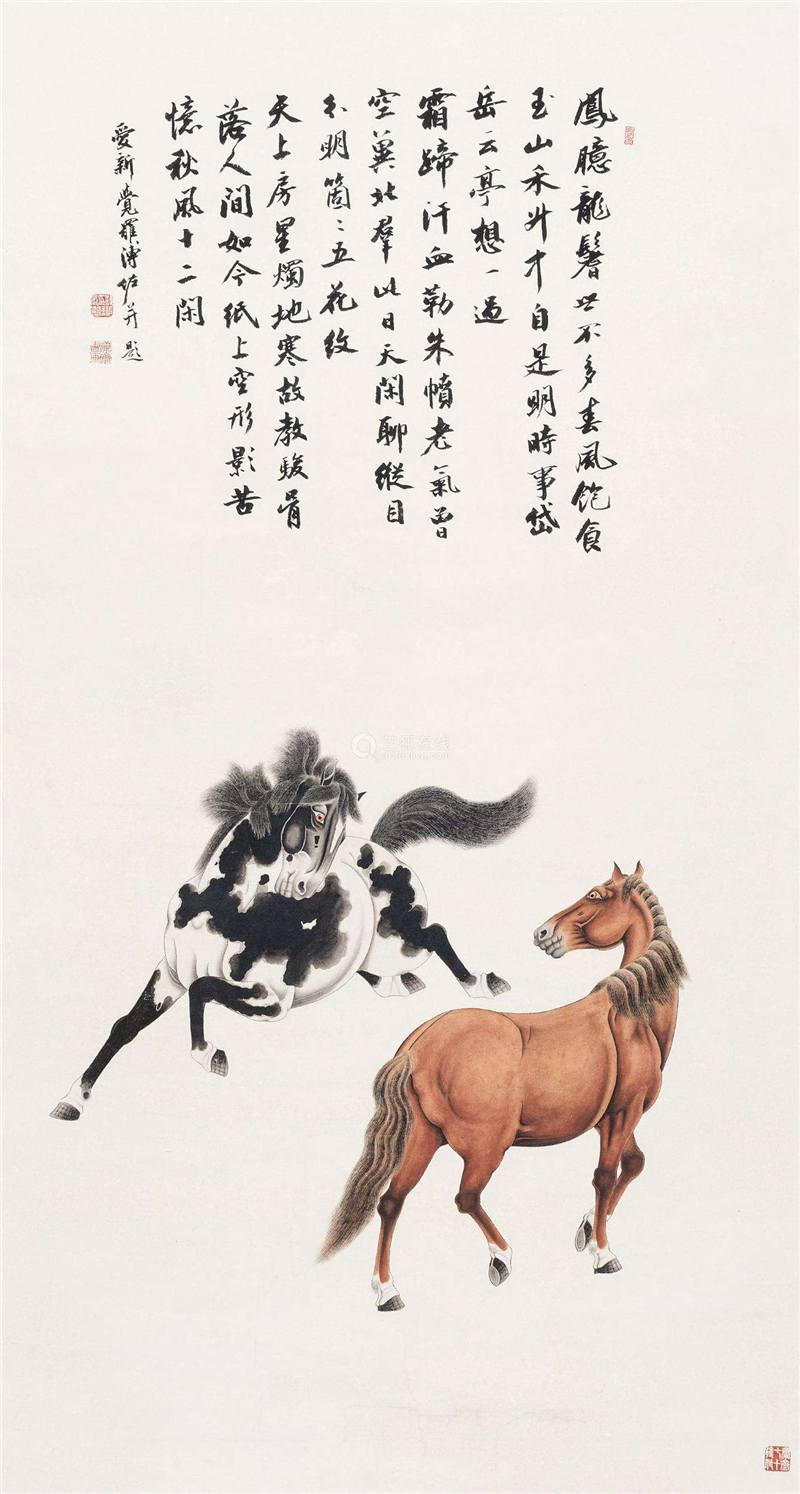 鳳臆龍鬐世不多春風飽食
玉山禾升才自是明時事岱
岳云亭想一過
霜蹄汗血勒朱幩老氣曾
空冀北羣此日天閑聊縱目
分明箇〻五花紋
天上房星燭地寒故教駿骨
落人間如今紙上空形影苦
憶秋風十二閑
愛新覺羅溥佐并題